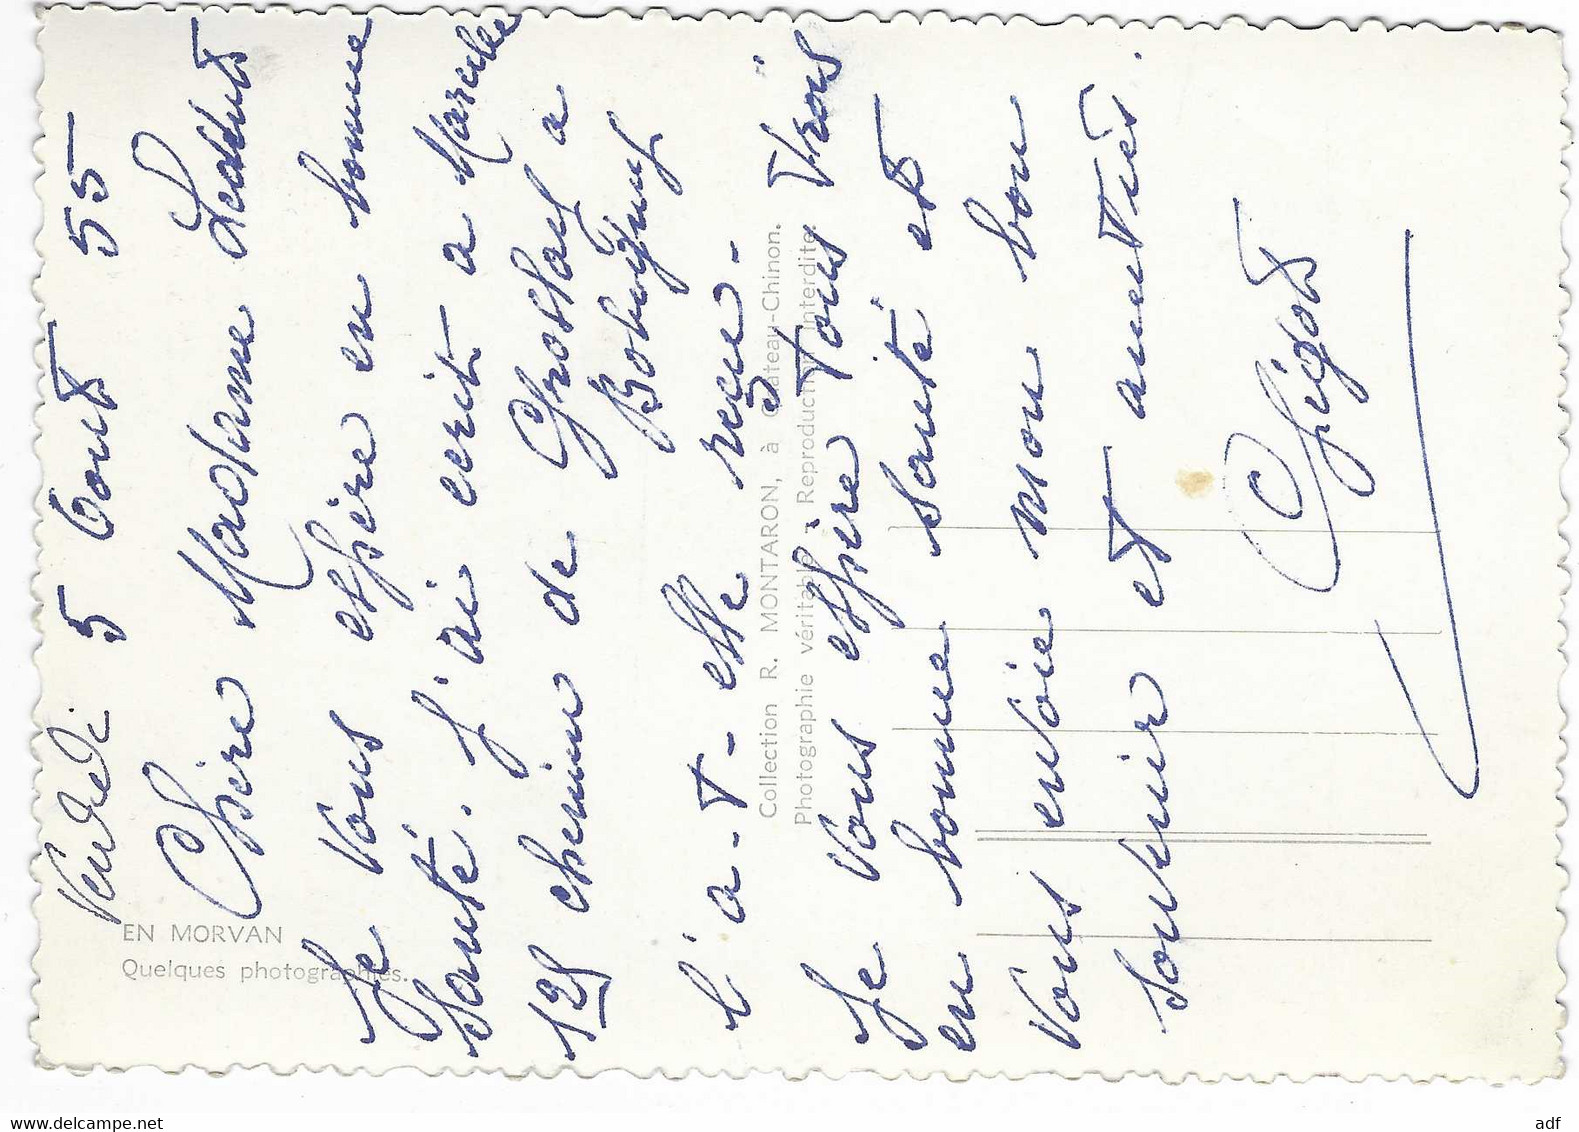 Vendredi 5 Août 55
Chère Madame
Je vous espère en bonne
santé. J'ai ecrit a
125 chemin de a
Bobigny
l'a-t-elle reçu -
Je vous espère tous trois
en bonne santé et
vous envoie mon bon
souvenir et amitiés.
EN MORVAN
Quelques photographies.
Collection R. MONTARON, à Château-Chinon.
Photographie véritable - Reproduction interdite.
www.delcampe.net
adf